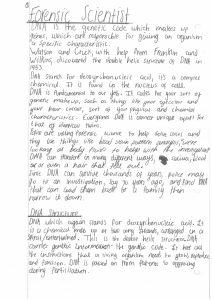 Forensic Scientist
DNA is the genetic code which makes up
genes, which are responsible for giving an organism
a specific characteristic.
Watson and Crick, with help from Franklin and
Wilkins, discovered the double helix structure of DNA in
1953.
DNA stands for deoxyribonucleic acid, it's a complex
chemical. It is found in the nucleus of cells.
DNA is fundamental to our life. It codes for our
genetic makeup, such as things like your eye colour and
your hair, all sort of your physical and chemical
characteristics. Everyones DNA is unique except for
that of identical twins.
are using forensic science to help solve crimes and
they use things like blood
looking at body to help with the investigation
DNA can be found in many different ways, saliva, blood
or even a hair shed
DNA can survive thousands of years, police may
go to an investigation, by years ago, and find DNA
that can lead them and then
narrow it down.
DNA Structure
DNA which again stands for deoxyribonucleic acid. It
is a chemical made up of two long strands, wrapped in a
spiral/intertwined. This is the double helix structure. DNA
carries genetic information - the genetic code. It has all
the instructions that a living organism need to grow, reproduce
and function. DNA is passed on from parents to offspring
during fertilisation.